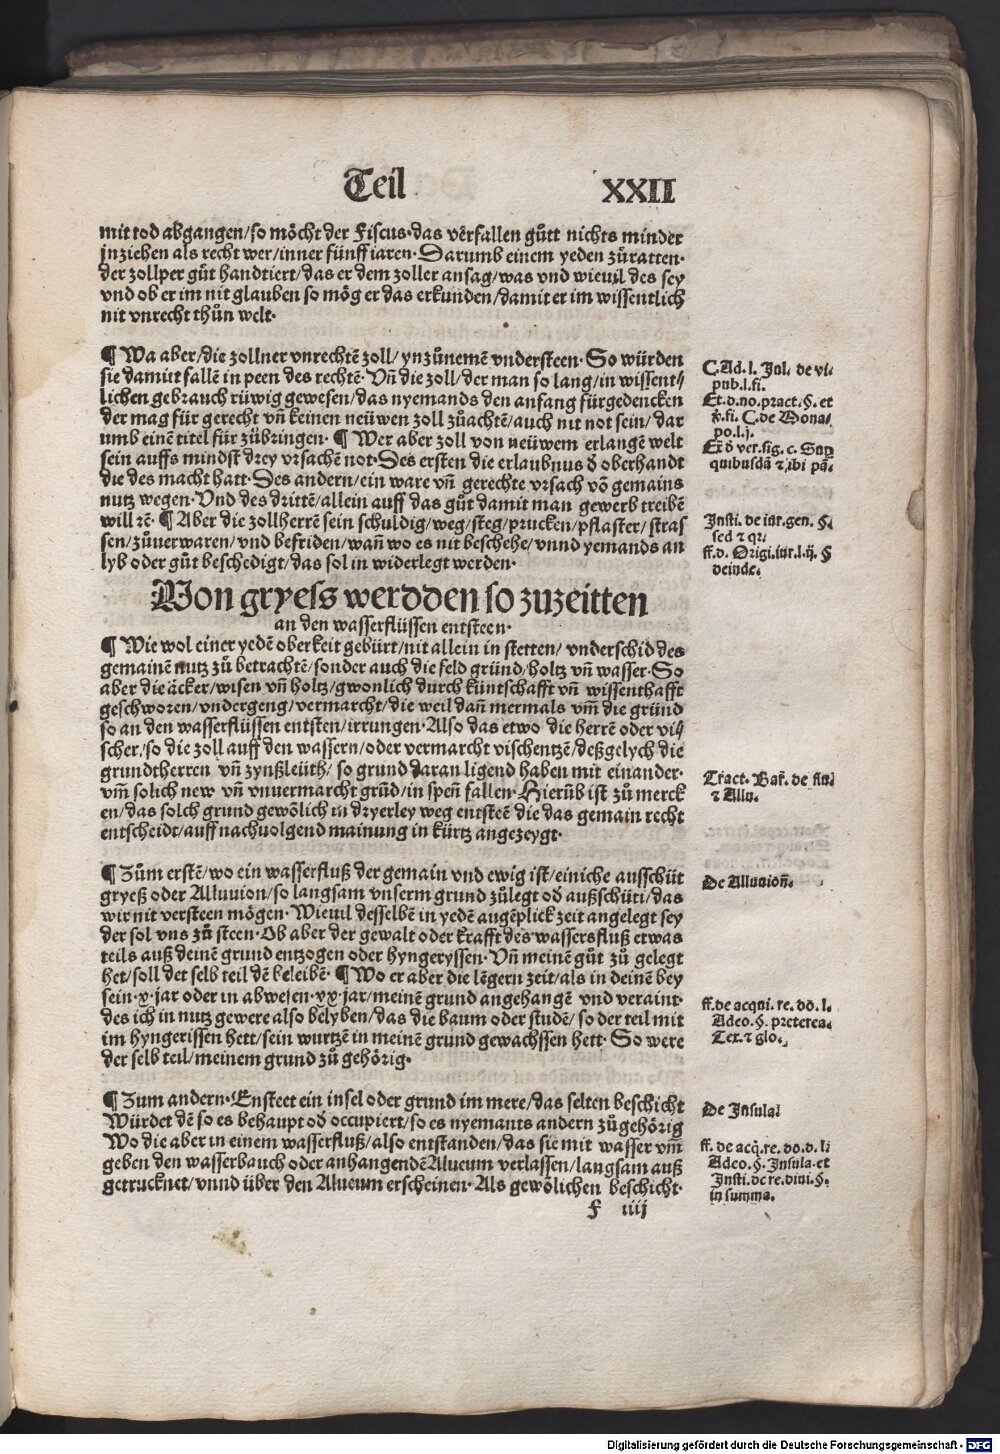 Teil XXII
mit tod abgangen/so möcht der Fiscus·das vẽrfallen gůtt nichts minder
jnziehen als recht wer/inner fünff jaren·Darumb einem yeden zůratten·
der zollper gůt handtiert/das er dem zoller ansag/was vnd wieuil des sey
vnd ob er im nit glauben so mög er das erkunden/damit er im wissentlich
nit vnrecht thůn welt·
¶ Wa aber/die zollner vnrechtẽ zoll/ynzůnemẽ vndersteen·So würden
sie damitt fallẽ in peen des rechtẽ·Vñ die zoll/der man so lang/in wissent⸗
lichen gebrauch rüwig gewesen/das nyemands den anfang fürgedencken
der mag für gerecht vñ keinen neüwen zoll zůachtẽ/auch nit not sein/dar
umb einẽ titel für zůbringen· ¶ Wer aber zoll von neüwem erlangẽ welt
sein auffs mindst drey vrsachẽ not·Des ersten die erlaubnus ð oberhandt
die des macht hatt·Des andern/ein ware vñ gerechte vrsach võ gemains
nutz wegen·Vnd des drittẽ/allein auff das gůt damit man gewerb treibẽ
will ꝛẽ·¶ Aber die zollherrẽ sein schuldig/weg/steg/prucken/pflaster/stras
sen/zůuerwaren/vnd befriden/wañ wo es nit beschehe/vnnd yemands an
lyb oder gůt beschedigt/das sol in widerlegt werden·
C.Ad.l.Jul. de vi.
pub.l.fi.
Et.d.no.pract.§.et
x̃.fi. C.de Mona/
po.l.j.
Ex̃ ð ver.sig.c.Sup
quibusdã ⁊ ibi pã.
Insti.de iur.gen.§.
sed ⁊ qr.
ff.d.Origi.iur.l.ij.§
deinde.
Von gryess werdden so zuzeitten
an den wasserflüssen entsteen·
¶ Wie wol einer yedẽ oberkeit gebürt/nit allein in stetten/ vnderschid des
gemainẽ nutz zů betrachtẽ/sonder auch die feld gründ/holtz vñ wasser·So
aber die äcker/wisen vñ holtz/gwonlich durch küntschafft vñ wissenthafft
geschworen/vndergeng/vermarcht/die weil dañ mermals vm̃ die gründ
so an den wasserflüssen entsten/irrungen·Also das etwo die herrẽ oder vi⸗
scher/so die zoll auff den wassern/oder vermarcht vischentzẽ/deßgelych die
grundtherren vñ zynßleüth/ so grund daran ligend haben mit einander·
vm̃ solich new vñ vnuermarcht grũd/in speñ fallen·Hierũb ist zů merck
en/das solch grund gewõlich in dryerley weg entsteẽ die das gemain recht
entscheidt/auff nachuolgend mainung in kürtz angezeygt·
Tract. Bar̃. de flu.
⁊ Allu.
¶ Zům erstẽ/wo ein wasserfluß der gemain vnd ewig ist/einiche ausschüt
gryeß oder Alluuion/so langsam vnserm grund zůlegt oð außschüti/das
wir nit versteen mögen·Wieuil desselbẽ in yedẽ augẽplick zeit angelegt sey
der sol vns zů steen·Ob aber der gewalt oder krafft des wassersfluß etwas
teils auß deinẽ grund entzogen oder hyngeryssen·Vñ meinẽ gůt zů gelegt
het/soll der selb teil dẽ beleibẽ· ¶ Wo er aber die lẽgern zeit/als in deinẽ bey
sein·x·jar oder in abwesen·xx·jar/meinẽ grund angehangẽ vnd veraint·
des ich in nutz gewere also belyben/das die baum oder studẽ/ so der teil mit
im hyngerissen hett/sein wurtzẽ in meinẽ grund gewachssen hett· So were
der selb teil/meinem grund zů gehörig·
De Alluuioñ.
ff.de acqui.re.do.l.
Adeo.§.preterea.
Tex.⁊ glo.
¶ Zum andern·Ensteet ein insel oder grund im mere/das selten beschicht
Würdet dẽ so es behaupt oð occupiert/so es nyemants andern zůgehörig
Wo die aber in einem wasserfluß/also entstanden/das sie mit wasser vm̃
geben den wasserbauch oder anhangendẽ Alueum verlassen/langsam auß
getrucknet/vnnd über den Alueum erscheinen·Als gewõlichen beschicht·
De Insula.
ff.de acq̃.re.do.d.l.
Adeo.§.Insula.et
Insti.de re.diui.§.
in summa.
F iiij
Digitalisierung gefördert durch die Deutsche Forschungsgemeinschaft - DFG